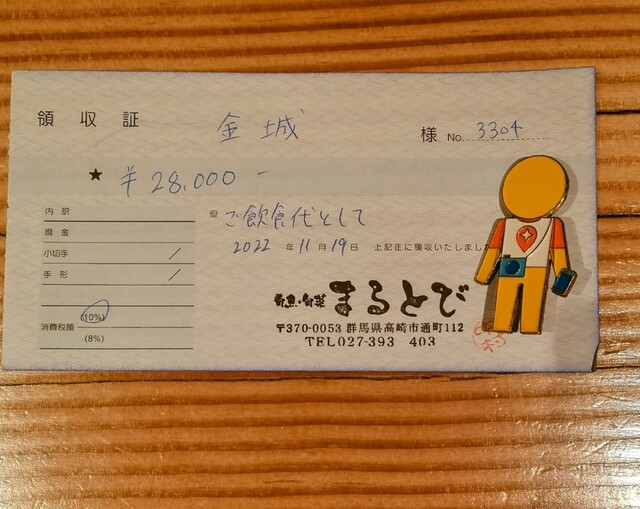 領収証
金城 様 No. 3304
★ ¥28,000-
内訳
但 ご飲食代として
現金
2022年11月19日 上記正に領収いたしまし
小切手 /
手形 /
旬魚・旬菜 まるとび
(10%)
消費税額
(8%)
〒370-0053 群馬県高崎市通町112
TEL027-393 403